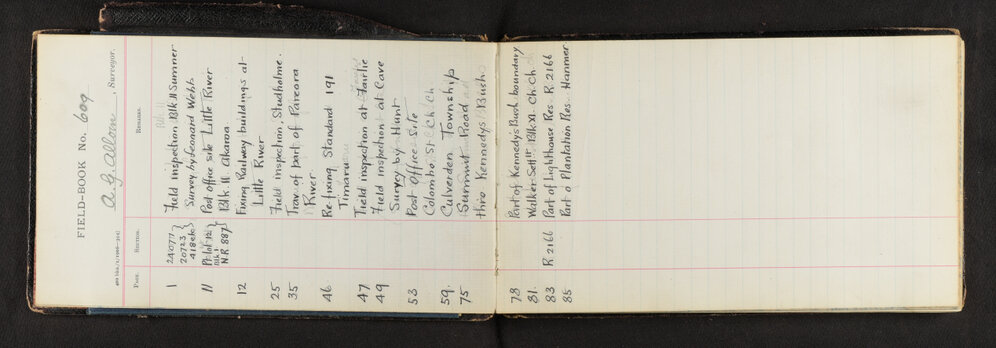 FIELD-BOOK No. 609
A. G. Allom, Surveyor.
Page. Section. Remarks.
1 24077 Field inspection Blk II Sumner
20723 Survey by Leonard Webb
418 etc
11 Pt lot 12 Post office site Little River
Blk 1 Blk II Akaroa
N.R. 887
12 Fixing Railway buildings at
Little River
25 Field inspection, Studholme.
35 Trav of part of Pareora
River
46 Re-fixing Standard 191
Timaru
47 Field inspection at Fairlie
49 Field inspection at Cave
Survey by Hunt
53 Post Office Site
Colombo St Ch Ch
59. Culverden Township
75 Summit Road
thro Kennedys Bush
78 Part of Kennedys Bush boundary
81. Walker Settlt Blk XI Ch. Ch
83 R 2166 Part of Lighthouse Res. R 2166
85 Part o Plantation Res. Hanmer